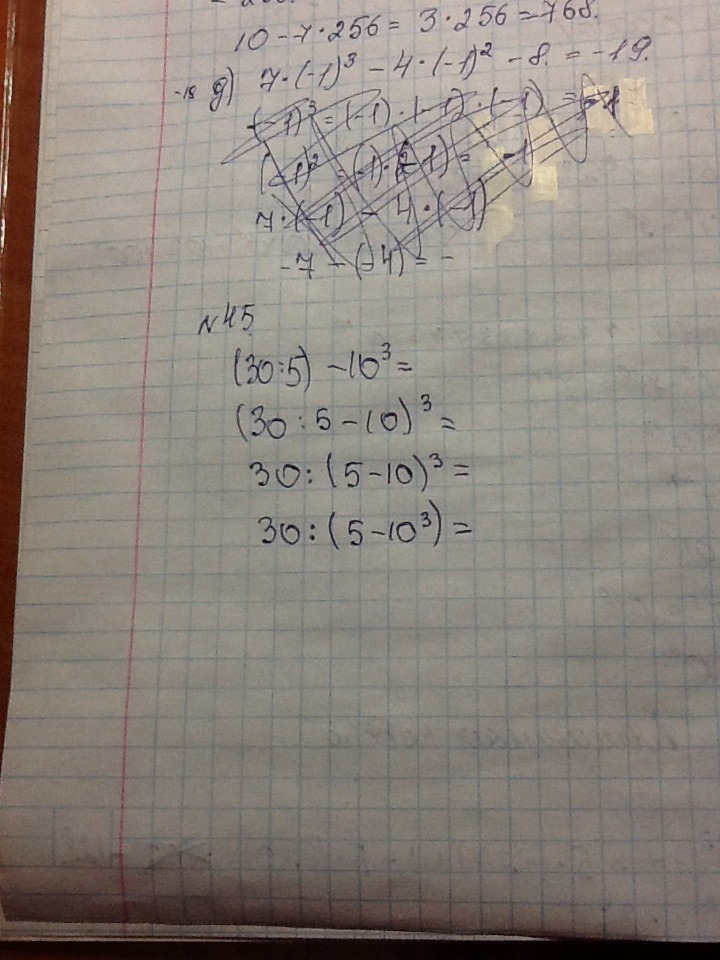 10-7·256 = 3·256 = 768.
-18 g) 7·(-1)³ - 4·(-1)² - 8. = -19.
(-1)³ = (-1)·(-1)·(-1) = -1
(-1)² = (-1)·(-1) = -1
7·(-1) - 4·(-1)
-7 - (-4) = -
№45.
(30:5) -10³=
(30:5-10)³=
30:(5-10)³=
30:(5-10³)=